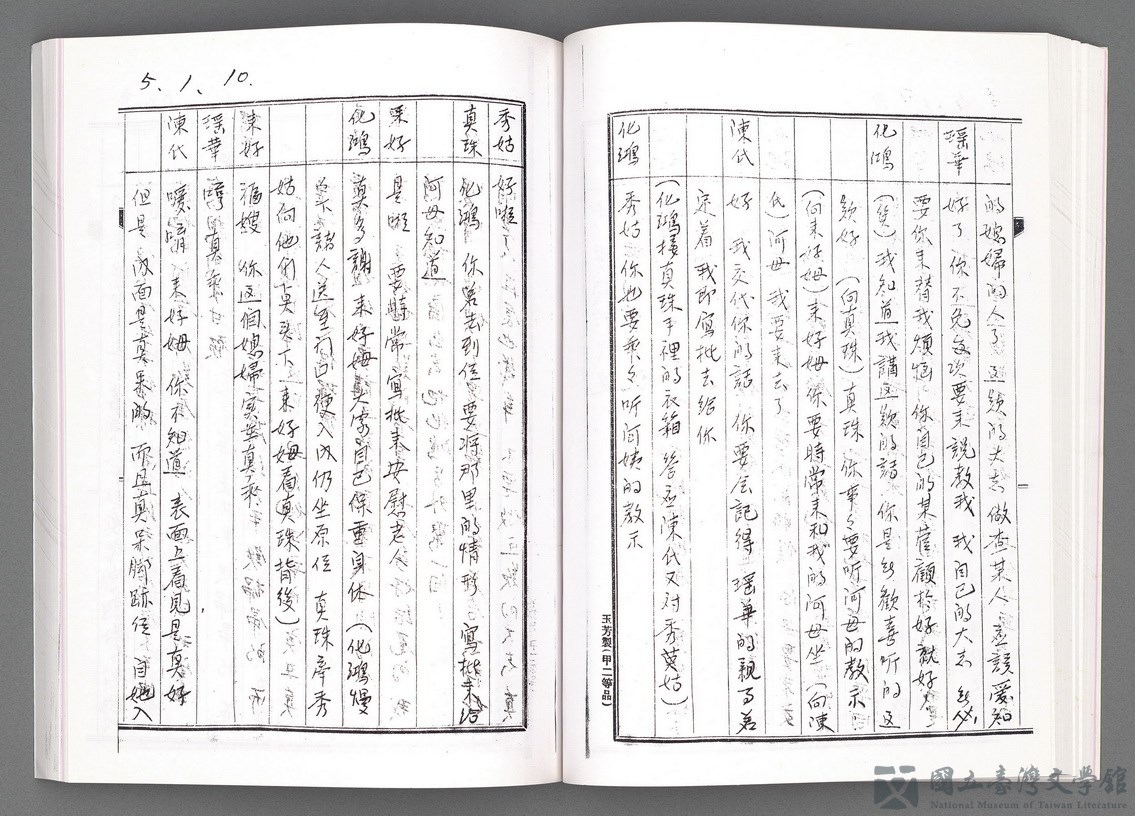 的媳婦的人了這款的大志做查某人應該愛知
瑤華 好了你不免每次要來說教我 我自己的大志
要你來替我煩惱 你自己的某薩顧捨好就好
化鴻 (笑)我知道我講這款的話 你是無歡喜听的這
款好 (向真珠)真珠 你事々要听阿母的教示
(向來好姆)來好姆你要時常來和我的阿母坐(向陳
氏)阿母 我要來去了
陳氏 好 我交代你的話 你要会記得 瑤華的親事若
定着 我即寫批去給你
(化鴻接真珠手裡的衣箱 答应陳氏又對秀英姑)
化鴻 秀姑 你也要乖々听阿姨的教示
玉芳製(甲二等品)
5、1、10.
秀姑 好啦
真珠 化鴻 你若去到位 要將那里的情形 寫批來給
阿母知道
來好 是啦 要時常寫批來安慰老人
化鴻 真多謝 來好姆真実自己保重身体 (化鴻慢
眾諸人送至門口 便入內仍坐原位 真珠牽秀
姑向他們 頭下 來好姆看真珠背後)
來好 福嫂 你這個媳婦实在真乖
瑤華 真乖
陳氏 暖唷 來好姆 你不知道 表面上看見是真好
但是內面是真呆的 而且真呆脚跡 自她入
國立臺灣文學館
National Museum of Taiwan Literature